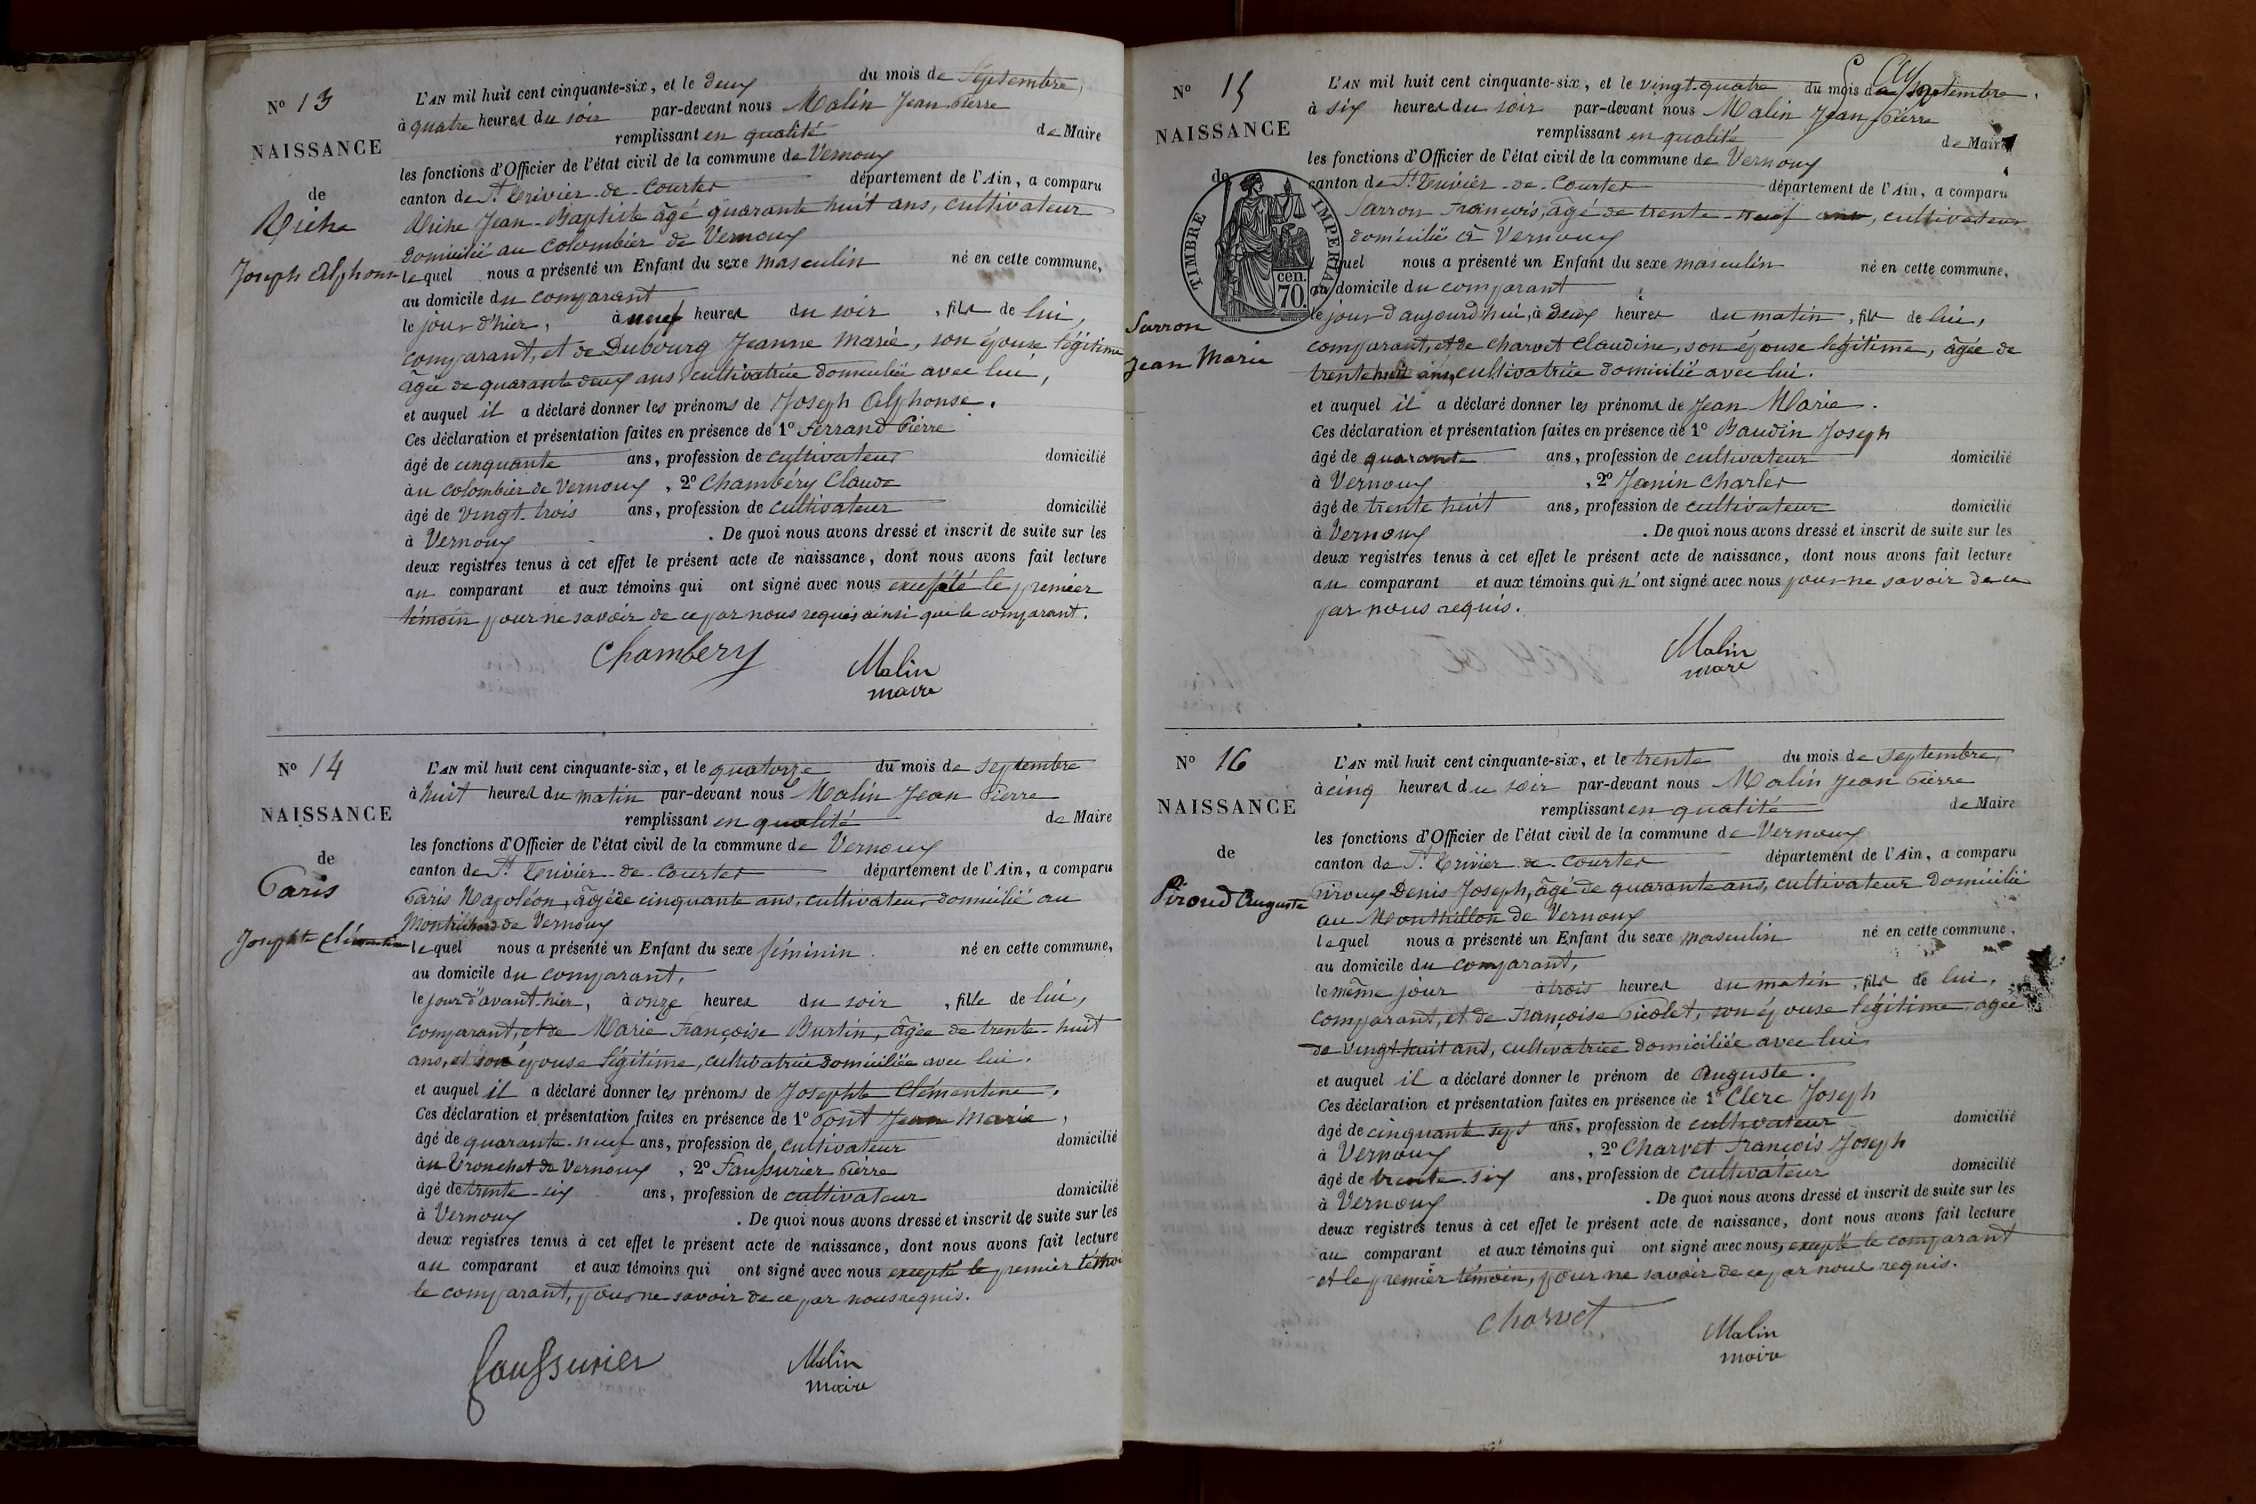 N° 13
NAISSANCE
de
Riche
Joseph Alphonse
L'AN mil huit cent cinquante-six, et le deux du mois de Septembre,
à quatre heures du soir par-devant nous Malin Jean Pierre
remplissant en qualité de Maire
les fonctions d'Officier de l'état civil de la commune de Vernoux
canton de St Trivier-de-Courtes département de l'Ain, a comparu
Riche Jean-Baptiste âgé quarante huit ans, cultivateur
domicilié au colombier de Vernoux
lequel nous a présenté un Enfant du sexe masculin né en cette commune,
au domicile du comparant
le jour d'hier, à neuf heures du soir, fils de lui,
comparant, et de Dubourg Jeanne Marie, son épouse légitime
âgée de quarante deux ans cultivatrice domiciliée avec lui,
et auquel il a déclaré donner les prénoms de Joseph Alphonse.
Ces déclaration et présentation faites en présence de 1° Ferrand Pierre
âgé de cinquante ans, profession de cultivateur domicilié
au colombier de Vernoux, 2° Chambéry Claude
âgé de vingt-trois ans, profession de cultivateur domicilié
à Vernoux. De quoi nous avons dressé et inscrit de suite sur les
deux registres tenus à cet effet le présent acte de naissance, dont nous avons fait lecture
au comparant et aux témoins qui ont signé avec nous excepté le premier
témoin pour ne savoir de ce par nous requis ainsi que le comparant.
Chambery
Malin
maire
N° 14
NAISSANCE
de
Paris
Josephte Clémentine
L'AN mil huit cent cinquante-six, et le quatorze du mois de septembre
à huit heures du matin par-devant nous Malin Jean Pierre
remplissant en qualité de Maire
les fonctions d'Officier de l'état civil de la commune de Vernoux
canton de St Trivier-de-Courtes département de l'Ain, a comparu
Paris Napoléon, âgé de cinquante ans, cultivateur domicilié au
de Vernoux
lequel nous a présenté un Enfant du sexe féminin né en cette commune,
au domicile du comparant,
le jour d'avant-hier, à onze heures du soir, fille de lui,
comparant, et de Marie Françoise Burtin, âgée de trente-huit
ans, et son épouse légitime, cultivatrice domiciliée avec lui.
et auquel il a déclaré donner les prénoms de Josephte Clémentine.
Ces déclaration et présentation faites en présence de 1° Pont Jean Marie,
âgé de quarante-neuf ans, profession de cultivateur domicilié
au Tronchet de Vernoux, 2° Faussurier Pierre
âgé de trente-six ans, profession de cultivateur domicilié
à Vernoux. De quoi nous avons dressé et inscrit de suite sur les
deux registres tenus à cet effet le présent acte de naissance, dont nous avons fait lecture
au comparant et aux témoins qui ont signé avec nous excepté le premier témoin
le comparant, pour ne savoir de ce par nous requis.
Faussurier
Malin
maire
N° 15
NAISSANCE
de
TIMBRE IMPERIAL
cen.
70.
Sarron
Jean Marie
L'AN mil huit cent cinquante-six, et le vingt-quatre du mois de septembre,
à six heures du soir par-devant nous Malin Jean Pierre
remplissant en qualité de Maire
les fonctions d'Officier de l'état civil de la commune de Vernoux
canton de St Trivier-de-Courtes département de l'Ain, a comparu
Sarron François, âgé de trente-neuf ans, cultivateur
domicilié à Vernoux
lequel nous a présenté un Enfant du sexe masculin né en cette commune,
au domicile du comparant
le jour d'aujourd'hui, à deux heures du matin, fils de lui,
comparant, et de Charvet Claudine, son épouse légitime, âgée de
trente huit ans, cultivatrice domicilié avec lui.
et auquel il a déclaré donner les prénoms de Jean Marie.
Ces déclaration et présentation faites en présence de 1° Baudin Joseph
âgé de quarante ans, profession de cultivateur domicilié
à Vernoux, 2° Janin Charles
âgé de trente huit ans, profession de cultivateur domicilié
à Vernoux. De quoi nous avons dressé et inscrit de suite sur les
deux registres tenus à cet effet le présent acte de naissance, dont nous avons fait lecture
au comparant et aux témoins qui n'ont signé avec nous pour ne savoir de ce
par nous requis.
Malin
maire
N° 16
NAISSANCE
de
Piroud Auguste
L'AN mil huit cent cinquante-six, et le trente du mois de septembre,
à cinq heures du soir par-devant nous Malin Jean Pierre
remplissant en qualité de Maire
les fonctions d'Officier de l'état civil de la commune de Vernoux
canton de St Trivier-de-Courtes département de l'Ain, a comparu
Piroux Denis Joseph, âgé de quarante ans, cultivateur domicilié
au Monthillon de Vernoux
lequel nous a présenté un Enfant du sexe masculin né en cette commune,
au domicile du comparant,
le même jour à trois heures du matin, fils de lui,
comparant, et de Françoise Picolet, son épouse légitime, agée
de vingt huit ans, cultivatrice domiciliée avec lui
et auquel il a déclaré donner le prénom de Auguste.
Ces déclaration et présentation faites en présence de 1° Clerc Joseph
âgé de cinquante sept ans, profession de cultivateur domicilié
à Vernoux, 2° Charvet François Joseph
âgé de trente-six ans, profession de cultivateur domicilié
à Vernoux. De quoi nous avons dressé et inscrit de suite sur les
deux registres tenus à cet effet le présent acte de naissance, dont nous avons fait lecture
au comparant et aux témoins qui ont signé avec nous, excepté le comparant
et le premier témoin, pour ne savoir de ce par nous requis.
Charvet
Malin
maire